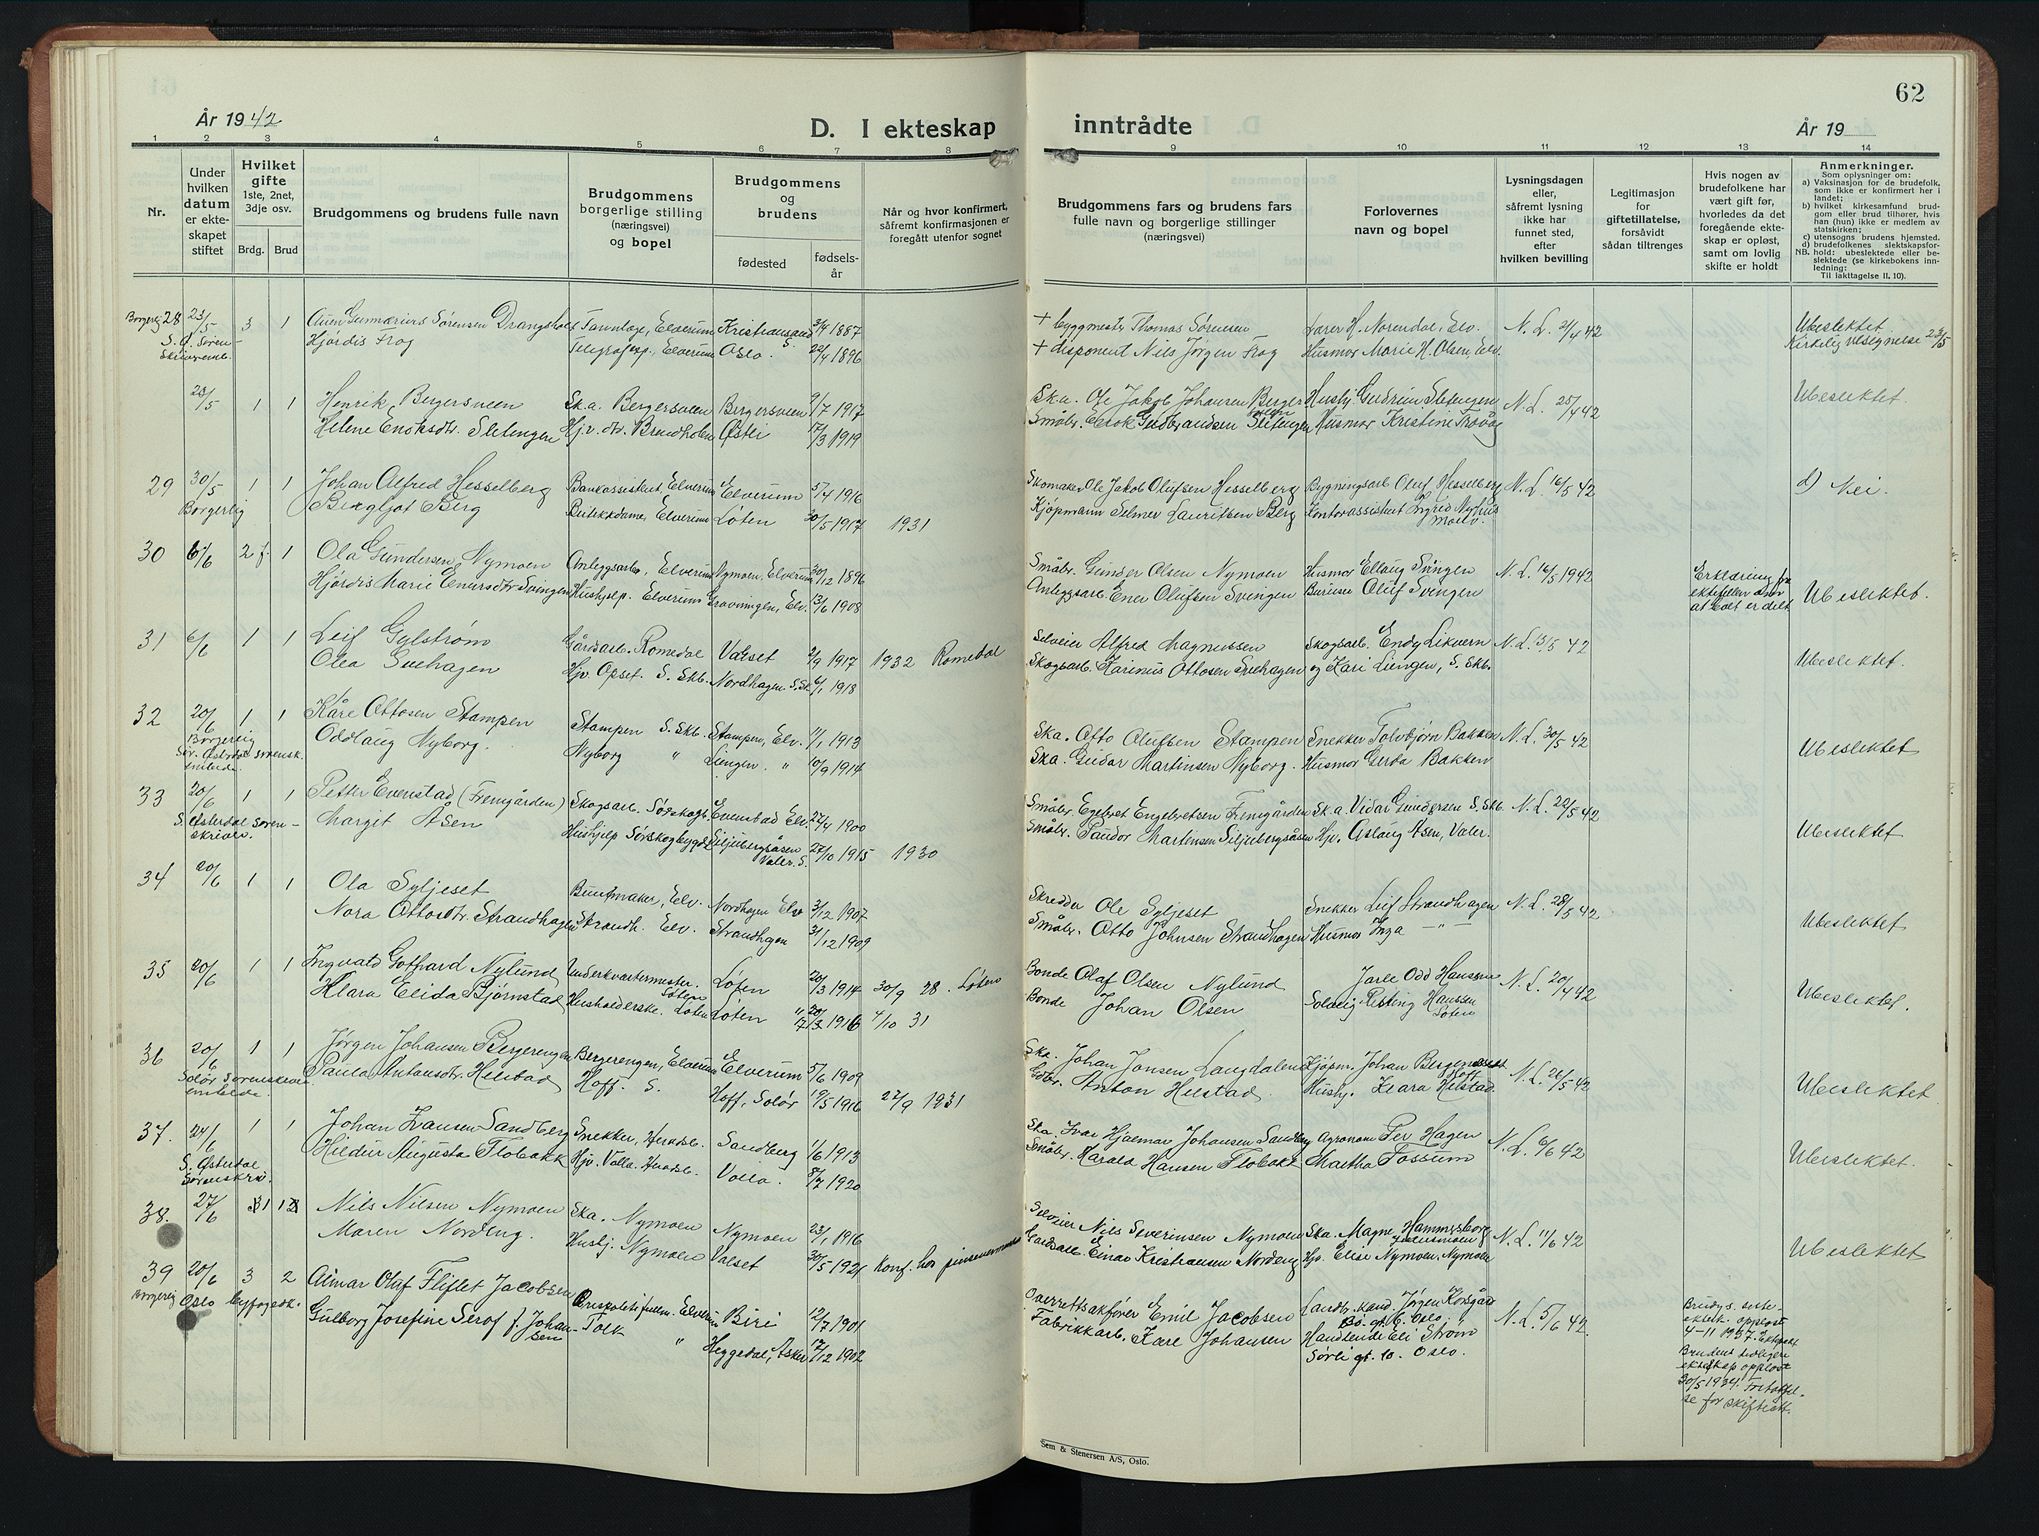 År 1942
D. I ekteskap
inntrådte
År 19
62
1 2 3 4 5 6 7 8 9 10 11 12 13 14
Nr.
Under hvilken datum er ekteskapet stiftet
Hvilket gifte 1ste, 2net, 3dje osv.
Brdg. Brud
Brudgommens og brudens fulle navn
Brudgommens borgerlige stilling (næringsvei) og bopel
Brudgommens og brudens
fødested
fødselsår
Når og hvor konfirmert, såfremt konfirmasjonen er foregått utenfor sognet
Brudgommens fars og brudens fars fulle navn og borgerlige stillinger (næringsvei)
Forlovernes navn og bopel
Lysningsdagen eller, såfremt lysning ikke har funnet sted, efter hvilken bevilling
Legitimasjon for giftetillatelse, forsåvidt sådan tiltrenges
Hvis nogen av brudefolkene har vært gift før, hvorledes da det foregående ekteskap er opløst, samt om lovlig skifte er holdt
Anmerkninger.
Som oplysninger om:
a) Vaksinasjon for de brudefolk, som ikke er konfirmert her i landet;
b) hvilket kirkesamfund brudgom eller brud tilhører, hvis han (hun) ikke er medlem av statskirken;
c) utensogns brudens hjemsted.
d) brudefolkenes slektskapsforhold: ubeslektede eller beslektede (se kirkebokens innledning:
NB. Til Iakttagelse II. 10).
Borgerlig 28 23/5 3 1 Gunnerius Sørensen Drangsholt Tannlæge, Elverum Kristiansand S. 1887 + byggmester Thomas Sørensen Lærer H. Norendal, Elv. N. L. 21/4 42 Ubeslektet.
Hjørdis Frog Telegrafexp., Elverum Oslo. 22/4 1896 + disponent Nils Jørgen Frog Husmor Marie H. Olsen, Elv. Kirkelig velsignelse 23/5
23/5 1 1 Henrik Bergersveen Ska. Bergersveen Bergersveen 9/7 1917 Ska. Ole Jakob Johansen Bergersveen Hushj. Gudrun Sletengen N. L. 25/4 42 Ubeslektet.
Helene Enoksdtr. Sletengen Østli 17/3 1919 Småbr. Enok Gudbrandsen Sletengen Husmor Kristine
29 30/5 1 1 Johan Alfred Hesselberg Bankassistent Elverum Elverum 5/4 1916 Skomaker Ole Jakob Olufsen Hesselberg Bygningsarb. Oluf Hesselberg N. L. 16/5 42 d) Nei.
Borgerlig Bergljot Berg Butikkdame, Elverum Løten 30/5 1917 1931 Kjøpmann Selmer Lauritsen Berg Kontorassistent Ingrid Nyhus Moelv.
30 6/6 2 f. 1 Ola Gundersen Nymoen Anleggsarb., Elverum Nymoen, Elverum 30/12 1896 Småbr. Gunder Olsen Nymoen Husmor Ellaug Svingen N. L. 16/5 1942 Erklæring fra ektefellen om at boet er delt Ubeslektet.
Hjørdis Marie Enersdtr Svingen Hushjelp. Elverum Gravningen, Elv. 13/6 1908 Anleggsarb. Ener Olufsen Svingen Oluf Svingen
31 6/6 1 1 Leif Gylstrøm Gårdsarb. Romedal Valset 2/9 1917 1932 Romedal Selveier Alfred Magnussen Skogsarb. Endy Likvern N. L. 13/5 42 Ubeslektet.
Olea Suehagen Hjv. Opset. S. Skb. Nordhagen S. Sk. 6/1 1918 Skogsarb. Karinus Ottosen Suehagen og Kari Liengen, S. Skb.
32 20/6 1 1 Kåre Ottosen Stampen Stampen S. Skb. Stampen, Elv. 1/1 1913 Ska. Otto Olufsen Stampen Snekker Torbjørn Bakken N. L. 30/5 42 Ubeslektet
Borgerlig Oddlaug Nyborg. Nyborg " Liengen. " 10/9 1914 Ska. Gudar Martinsen Nyborg. Husmor Gerda Bakken
Sør-Østerdal sorenskr. embede
33 20/6 1 1 Petter Evenstad (Fremgården) Skogsarb. Sørskogb. Evenstad Elv. 27/4 1900 Småbr. Engebret Engebretsen Fremgården Ska. Vidar Gundersen S. Skb. N. L. 22/5 42 Ubeslektet
S. Østerdal sorenskriver. Marget Åsen Hushjelp Sørskogbygda Siljubergsåsen Våler S. 27/10 1915 1930 Småbr. Martinsen Siljubergsåsen Hjv. Aslaug Åsen, Våler.
34 20/6 1 1 Ola Syljeset Buntmaker, Elv. Nordhagen Elv 3/12 1907 Skredder Ole Syljeset Snekker Leif Strandhagen N. L. 28/5 42 Ubeslektet
Nora Ottosdtr. Strandhagen Strandh. Elv. Strandhagen 31/12 1909 Småbr. Otto Johnsen Strandhagen Husmor Inga - " -
35 20/6 1 1 Ingvald Gothard Nylund Underkvartermester. Løten Løten 20/3 1914 30/9 28. Løten Bonde Olaf Olsen Nylund Jarle Odd Hanssen N. L. 20/4 42 Ubeslektet.
Klara Elida Bjørnstad Husholderske. Løten Løten 1916 4/10 31 Bonde Johan Olsen Solveig Hanssen Løten
36 20/6 1 1 Jørgen Johansen Bergerengen Bergerengen, Elverum Elverum 5/6 1909 Ska. Johan Jonsen Langdalen Kjøpm. Johan Bergeneset Hoff N. L. 26/5 42 Ubeslektet.
Solør Sorenskriverembede. Paula Antonsdtr. Helstad Hoff. S. Hoff, Solør 19/5 1916 27/9 1931 Gdbr. Anton Helstad. Hushj. Klara Helstad.
37. 24/6 1 1 Johan Ivansen Sandberg Snekker, Hernesb. Sandberg 1/6 1913 Ska. Ivar Hjalmar Johansen Sandberg Agronom Per Hagen N. L. 6/6 42 Ubeslektet.
S. Østerdal Sorenskr. Hildur Augusta Flobakk Hjv. Volla. Hernesb. Volla. 8/7 1920 Småbr. Harald Hansen Flobakk Martha Fossum
38. 27/6 1 1 Nils Nilsen Nymoen Ska. Nymoen Nymoen 23/1 1916 Selveier Nils Severinsen Nymoen Ska. Magne Hammersborg N. L. 11/6 42 Ubeslektet
Maren Nordeng. Hushj. Nymoen Valset 30/5 1921 Konf. hos pinsevennene Gårdsarb. Einar Kristiansen Nordeng Hjv. Elise Nymoen. Nymoen
39 20/6 3 2 Almar Olaf Fliflet Jacobsen Krispolitifullm. Elverum Biri 12/7 1901 Overrettsakfører Emil Jacobsen Landbr. kand. Jørgen Korsgård N. L. 5/6 42. Brudg. siste ektesk. oppløst 4-11 1937. Brudens tidligere ekteskap oppløst 30/5 1934. Fritakelse for skifteatt.
Borgerlig Oslo byfogedk. Gulborg Josefine Serof f. Johansen Tolk " Heggedal, Asker 17/12 1902 Fabrikkarb. Kare Johansen Handlende Eli Strøm Sørli gt. 10. Oslo.
Sem & Stenersen A/S, Oslo.